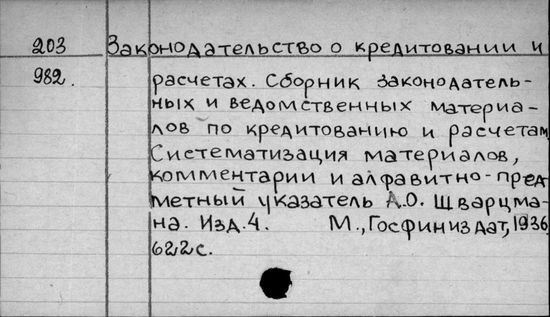 203 Законодательство о кредитовании и
982. расчетах. Сборник законодатель-
ных и ведомственных материа-
лов по кредитованию и расчетам
Систематизация материалов,
комментарии и алфавитно-пред
метный указатель А.О. Шварцма-
на. Изд. 4. М., Госфиниздат, 1936
622 с.